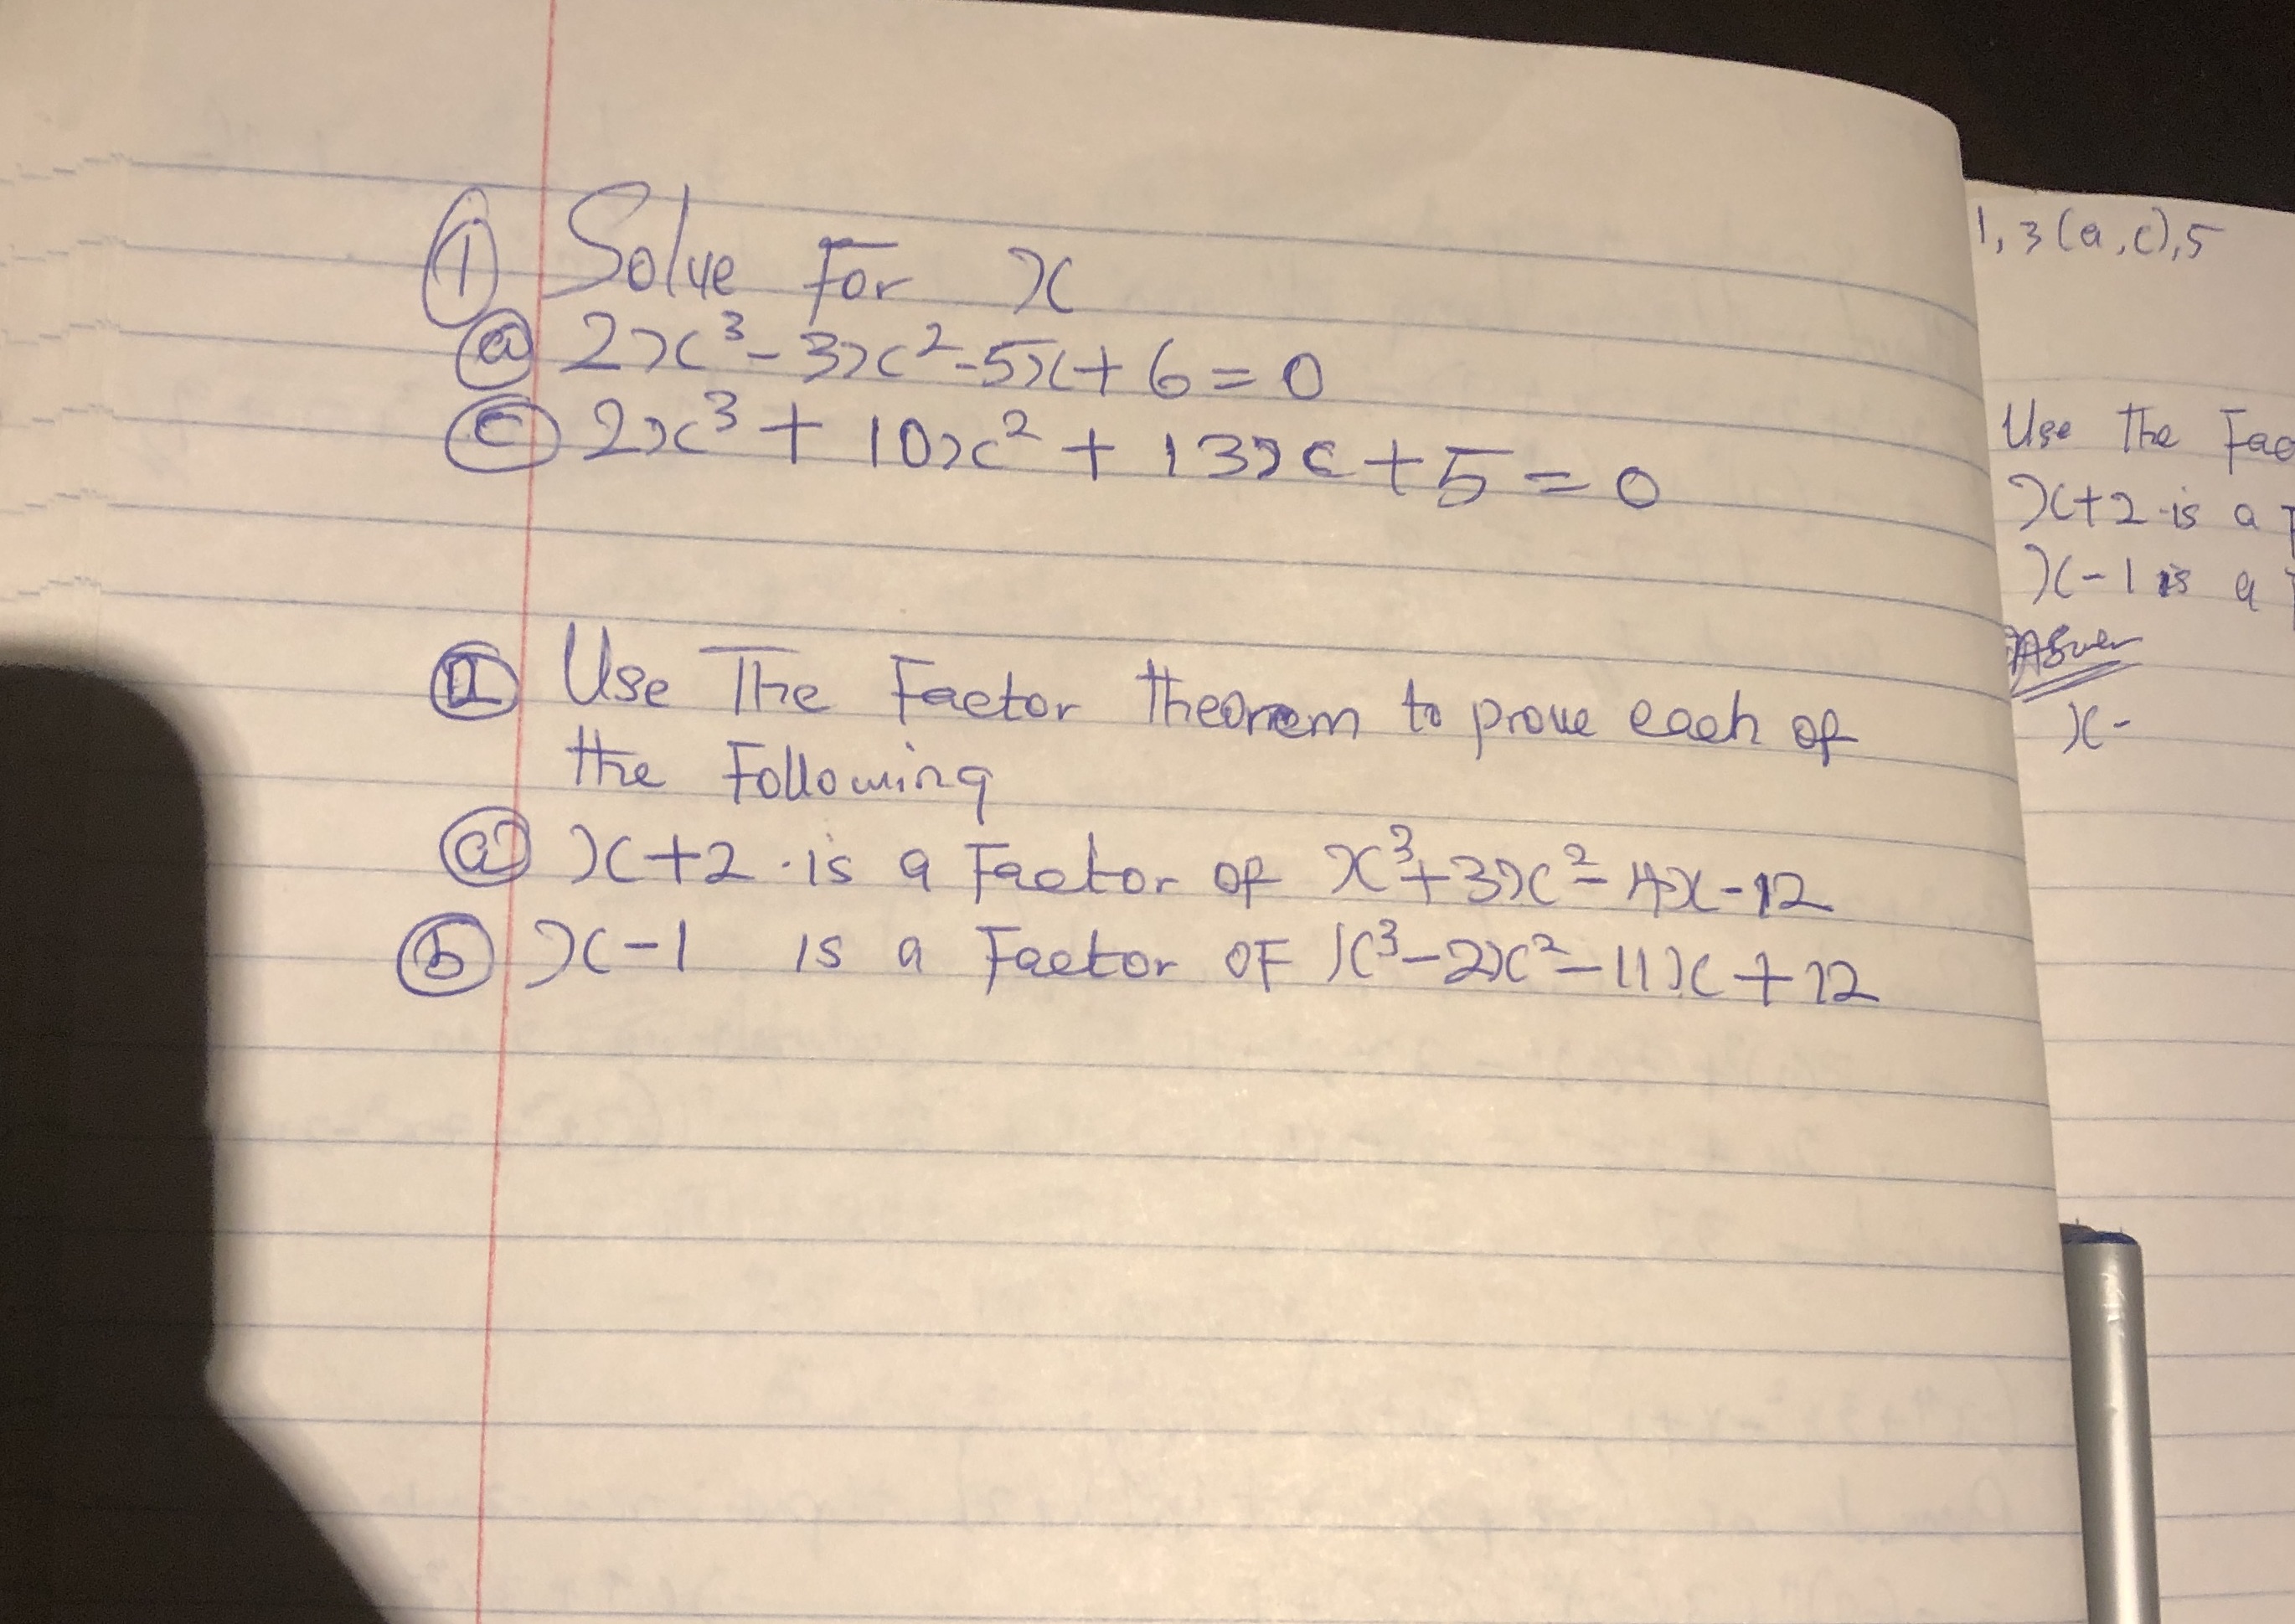 ① Solve For x
ⓐ 2x³ - 3x² - 5x + 6 = 0
ⓒ 2x³ + 10x² + 13x + 5 = 0
II Use The Factor theorem to prove each of
the Following
ⓐ x+2 is a Factor of x³+3x²-4x-12
ⓑ x-1 is a Factor OF x³-2x²-11x+12
1, 3(a,c),5
Use The Fac
x+2 is a F
x-1 is a F
x-